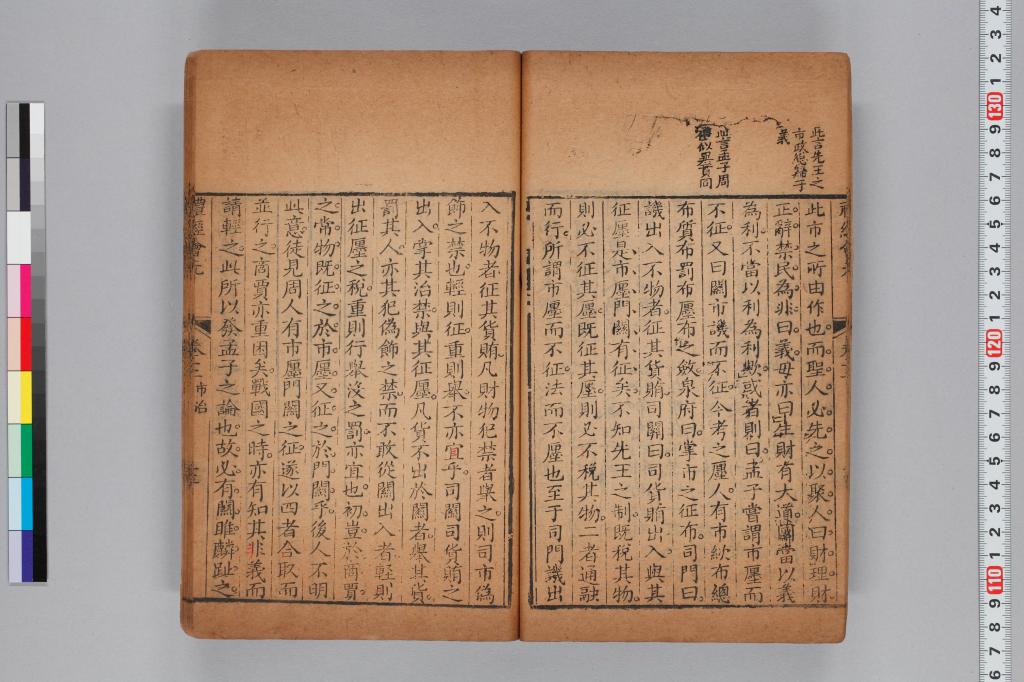 此言先王之
市政總歸于
義
此言孟子周
禮似異實同
此市之所由作也而聖人必先之以聚人曰財理財
正辭禁民為非曰義毋亦曰生財有大道國當以義
為利不當以利為利歟或者則曰孟子嘗謂市廛而
不征又曰關市譏而不征今考之廛人有市絘布總
布質布罰布廛布之斂泉府曰掌市之征布司門曰
譏出入不物者征其貨賄司關曰司貨賄出入與其
征廛是市廛門關有征矣不知先王之制既税其物
則必不征其廛既征其廛則必不税其物二者通融
而行所謂市廛而不征法而不廛也至于司門譏出
入不物者征其貨賄凡財物犯禁者舉之則司市偽
飾之禁也輕則征重則舉不亦宜乎司關司貨賄之
出入掌其治禁與其征廛凡貨不出於關者舉其貨
罰其人亦其犯偽飾之禁而不敢從關出入者輕則
出征廛之税重則行舉沒之罰亦宜也初豈於商賈
之常物既征之於市廛又征之於門關乎後人不明
此意徒見周人有市廛門關之征遂以四者合取而
並行之商賈亦重困矣戰國之時亦有知其非義而
請輕之此所以發孟子之論也故必有關雎麟趾之
禮經會元
卷三
市治